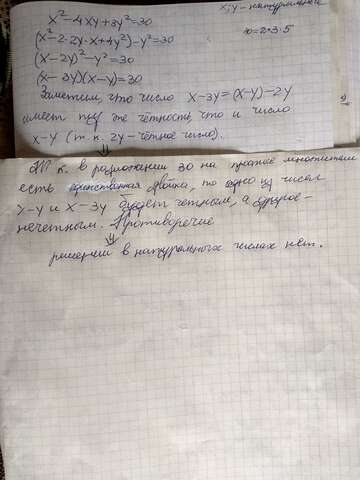 x, y - натуральные
x² - 4xy + 3y² = 30
(x² - 2·2y·x + 4y²) - y² = 30
30 = 2·3·5
(x - 2y)² - y² = 30
(x - 3y)(x - y) = 30
Заметим, что число x - 3y = (x - y) - 2y
имеет ту же чётность, что и число
x - y (т.к. 2y - чётное число).
⇓
Т.к. в разложении 30 на простые множители
есть единственная двойка, то одно из чисел
x - y и x - 3y будет четным, а другое -
нечетным. Противоречие
⇓
решений в натуральных числах нет.